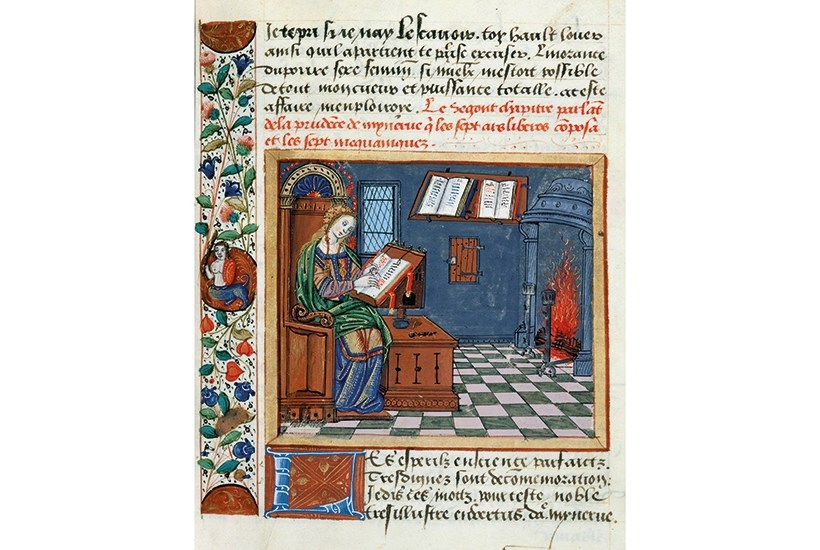 Je te pri si je nay le scavoir toy hault louer
ainsi quil apartient te plaise excuser. Lignorance
du povre sexe feminin si mieulx mestoit possible
de tout mon cueur et puissance totalle a ceste
affaire m'enploiroye. Le segont chapitre parlāt
de la prudēce de mynerve q̄ les sept ars liberos cōposa
et les sept mequaniquez.
Les esperilz en science parfaictz
Tresdignez sont de comemoration
Je dis ces motz pour ceste noble
tresillustre en vertus. da. mynerve.